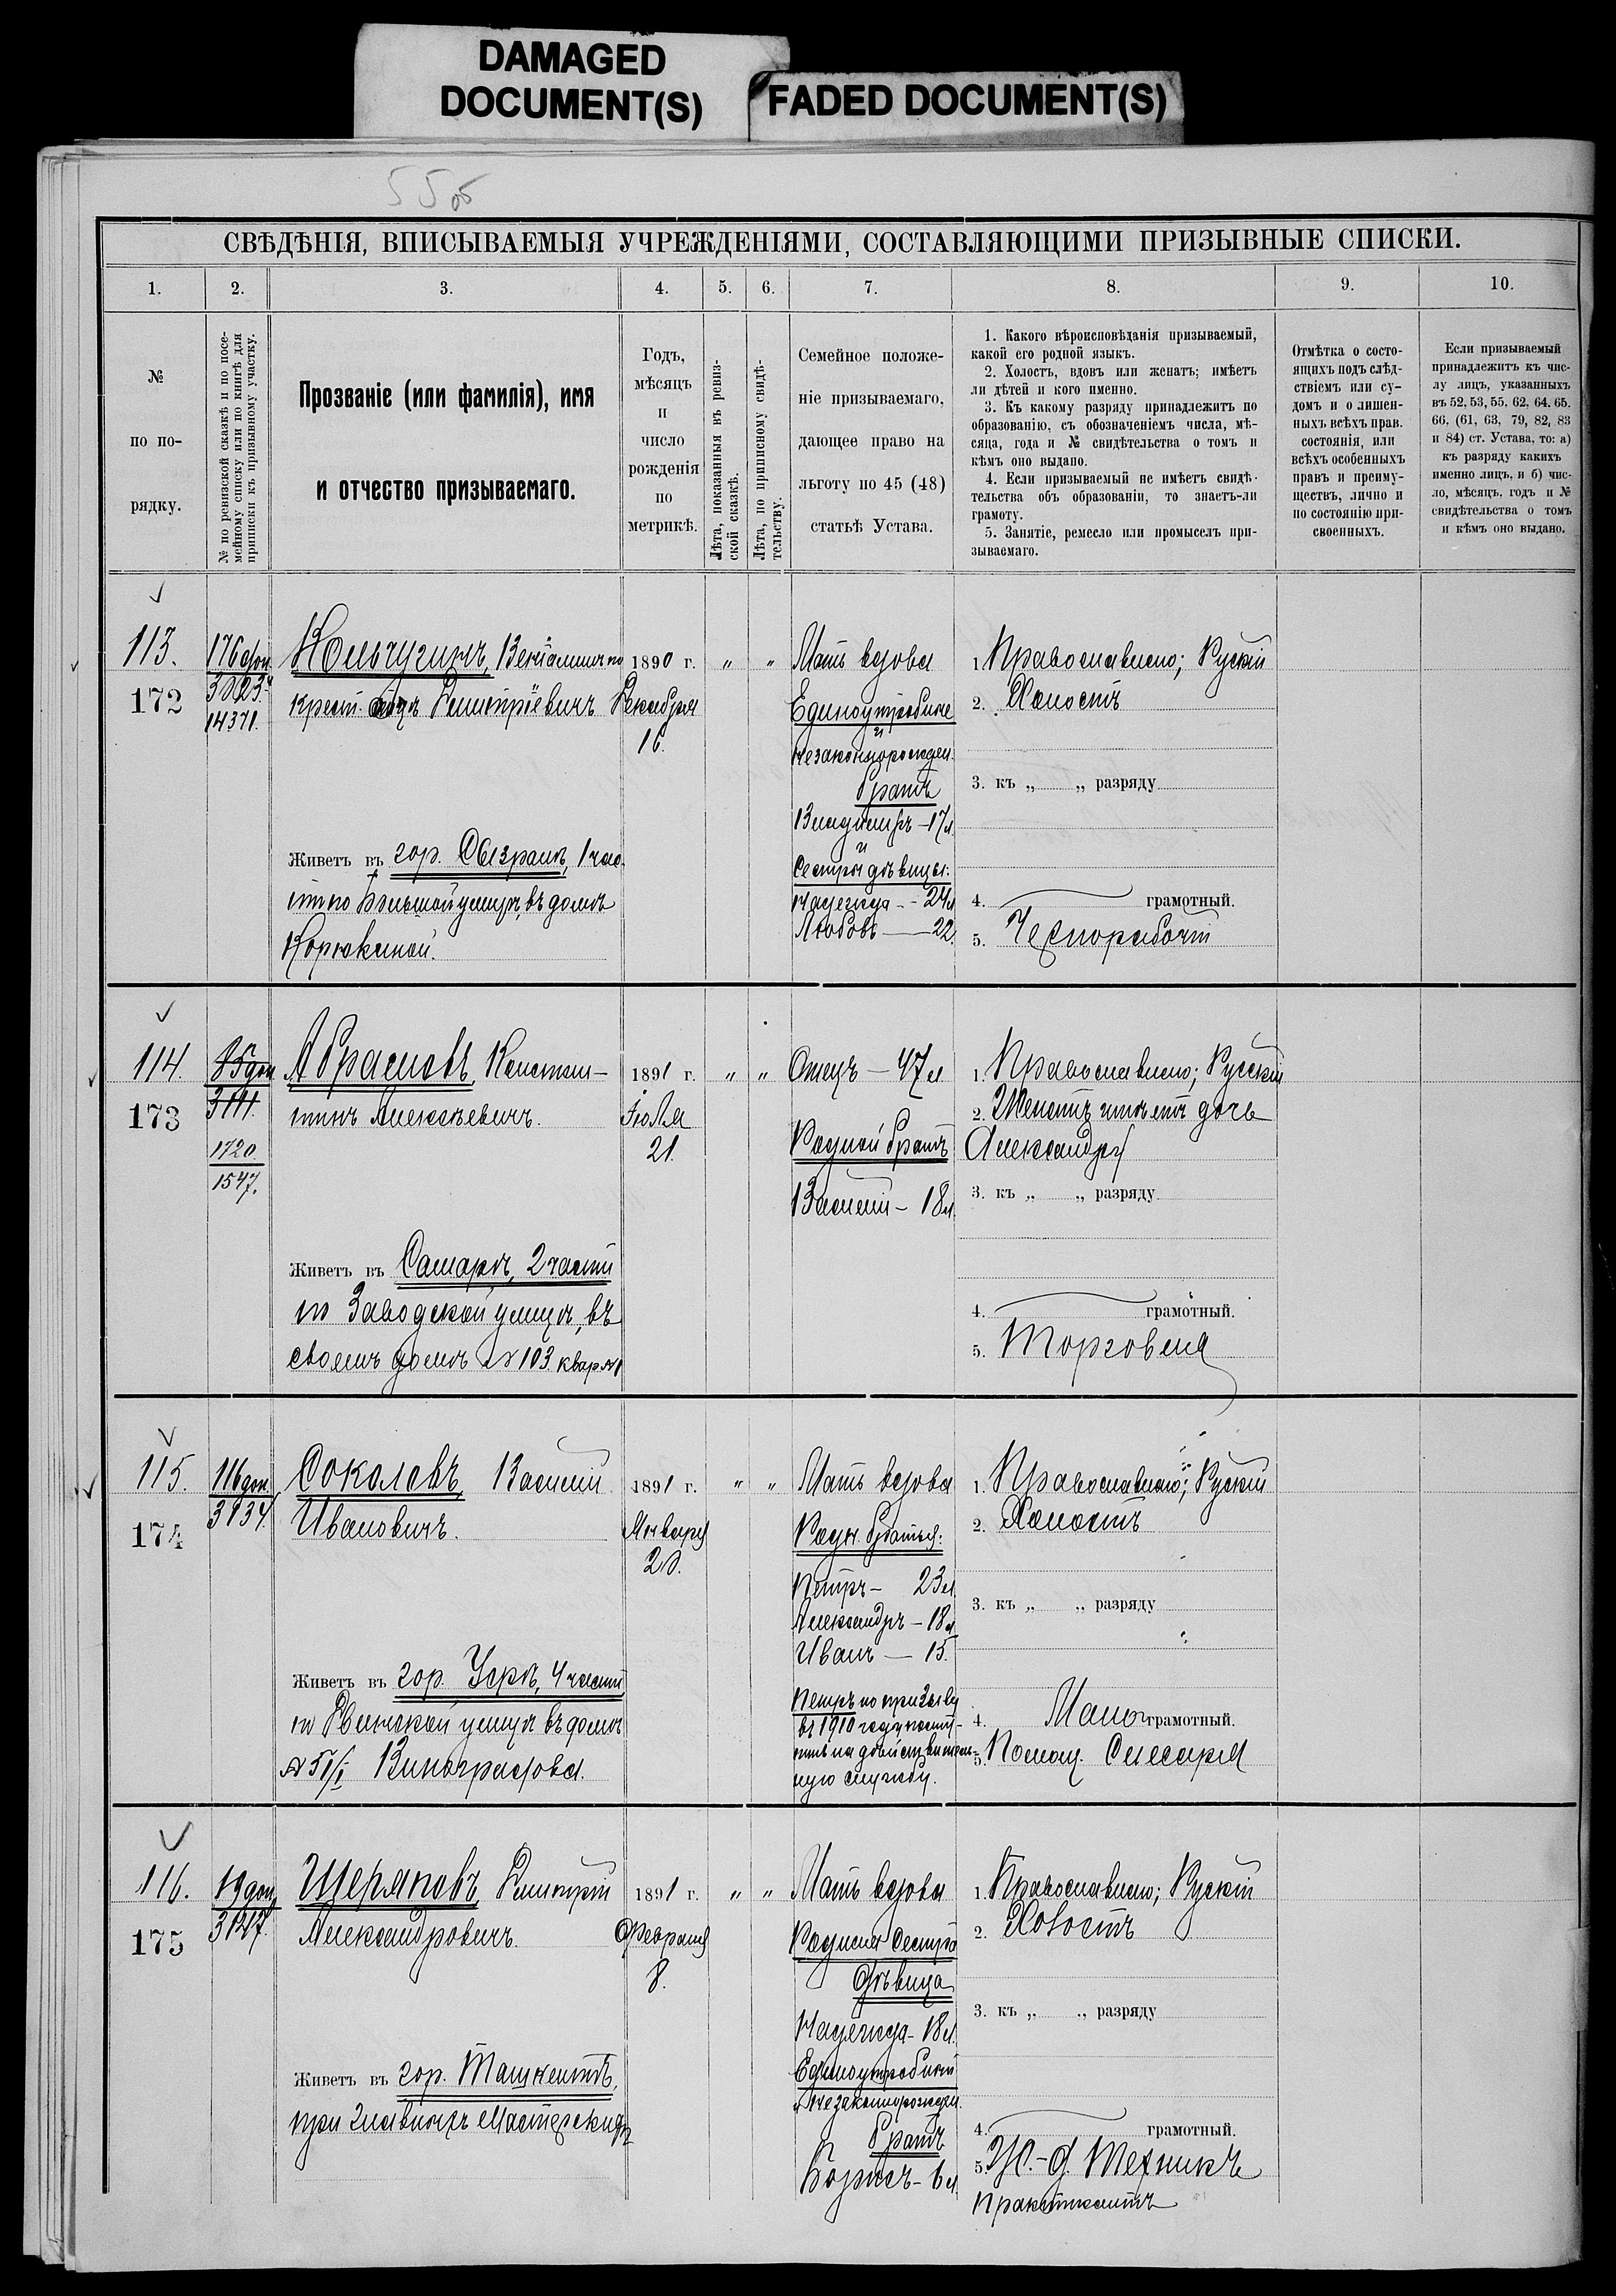 DAMAGED
DOCUMENT(S)
FADED DOCUMENT(S)
55 об
СВѢДѢНІЯ, ВПИСЫВАЕМЫЯ УЧРЕЖДЕНІЯМИ, СОСТАВЛЯЮЩИМИ ПРИЗЫВНЫЕ СПИСКИ.
1.
2.
3.
4.
5.
6.
7.
8.
9.
10.
№
по по-
рядку.
№ по ревизской сказкѣ и по посе-
мейному списку или по книгѣ для
приписки къ призывному участку.
Прозваніе (или фамилія), имя
и отчество призываемаго.
Годъ,
мѣсяцъ
и
число
рожденія
по
метрикѣ.
Лѣта, показанныя въ ревиз-
ской сказкѣ.
Лѣта, по приписному свидѣ-
тельству.
Семейное положе-
ніе призываемаго,
дающее право на
льготу по 45 (48)
статьѣ Устава.
1. Какого вѣроисповѣданія призываемый,
какой его родной языкъ.
2. Холостъ, вдовъ или женатъ; имѣетъ
ли дѣтей и кого именно.
3. Къ какому разряду принадлежитъ по
образованію, съ обозначеніемъ числа, мѣ-
сяца, года и № свидѣтельства о томъ и
кѣмъ оно выдано.
4. Если призываемый не имѣетъ свидѣ-
тельства объ образованіи, то знаетъ-ли
грамоту.
5. Занятіе, ремесло или промыселъ при-
зываемаго.
Отмѣтка о состо-
ящихъ подъ слѣд-
ствіемъ или су-
домъ и о лишен-
ныхъ всѣхъ прав.
состоянія, или
всѣхъ особенныхъ
правъ и преиму-
ществъ, лично и
по состоянію при-
своенныхъ.
Если призываемый
принадлежитъ къ чис-
лу лицъ, указанныхъ
въ 52, 53, 55, 62, 64, 65,
66, (61, 63, 79, 82, 83
и 84) ст. Устава, то: а)
къ разряду какихъ
именно лицъ, и б) чис-
ло, мѣсяцъ, годъ и №
свидѣтельства о томъ
и кѣмъ оно выдано.
113.
172
176 доп.
3023.
14371.
Кольчугинъ, Веніаминъ по
крест. отцу Дмитріевичъ
Живетъ въ гор. Сызрани, 1 час-
ти по Большой улицѣ, въ домѣ
Корюкиной.
1890 г.
Декабря
16.
„ „
Мать вдова
Единоутробные
и
незаконнорожден.
братъ
Владиміръ — 17 л.
и
сестры дѣвицы:
Надежда - - 24 л
Любовь — 22.
1. Православнаго; Рускій
2. Холостъ
3. къ „ „ разряду
4. грамотный.
5. Чернорабочій
114.
173
85 доп.
3111.
1720.
1547.
Абрамовъ, Констан-
тинъ Алексѣевичъ.
Живетъ въ Самарѣ, 2 части
по Заводской улицѣ, въ
своемъ домѣ № 103 квар №
1891 г.
Іюля
21.
„ „
Отецъ — 47 л
Родной братъ
Василій — 18 л.
1. Православнаго; Русскій
2. Женатъ имѣетъ дочь
Александру
3. къ „ „ разряду
4. грамотный.
5. Торговля
115.
174
116 доп.
3134.
Соколовъ, Василій
Ивановичъ.
Живетъ въ гор. Уфѣ, 4 части
по улицѣ въ домѣ
Виноградова.
1891 г.
Января
20.
„ „
Мать вдова
Родн. братья:
Петръ — 23 л
Александръ — 18 л
Иванъ — 15.
Петръ по призыву
въ 1910 году посту-
пилъ на дѣйствитель-
ную службу.
1. Православнаго; Рускій
2. Холостъ
3. къ „ „ разряду
4. Мало грамотный.
5. Помощ. Слесаря
116.
175
19 доп.
3147.
Шеряповъ, Димитрій
Александровичъ.
Живетъ въ гор. Ташкентѣ,
при Главныхъ Мастерскихъ
1891 г.
Февраля
8.
„ „
Мать вдова
Родная сестра
дѣвица
Надежда — 18 л.
Единоутробный
и незаконнорожден.
братъ
Борисъ — 6 л.
1. Православнаго; Рускій
2. Холостъ
3. къ „ „ разряду
4. грамотный.
5. Ж.-д. Техникъ
практикантъ